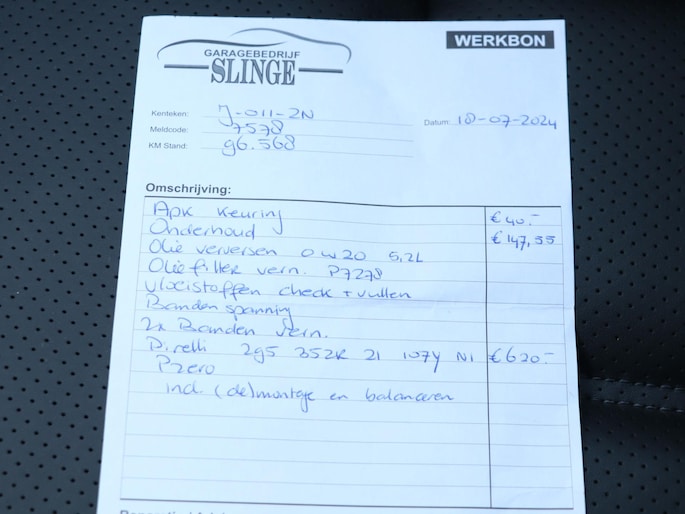 GARAGEBEDRIJF
SLINGE
WERKBON
Kenteken: J-011-ZN
Datum: 18-07-2024
Meldcode: 7578
KM Stand: 96.568
Omschrijving:
Apk keuring € 40.-
Onderhoud € 147,55
Olie verversen 0w20 5,2L
Oliefilter vern. P7278
vloeistoffen check + vullen
Banden spanning
2x Banden vern.
Pirelli 295 352R 21 107Y N1 € 620.-
Pzero
incl. (de)montage en balanceren